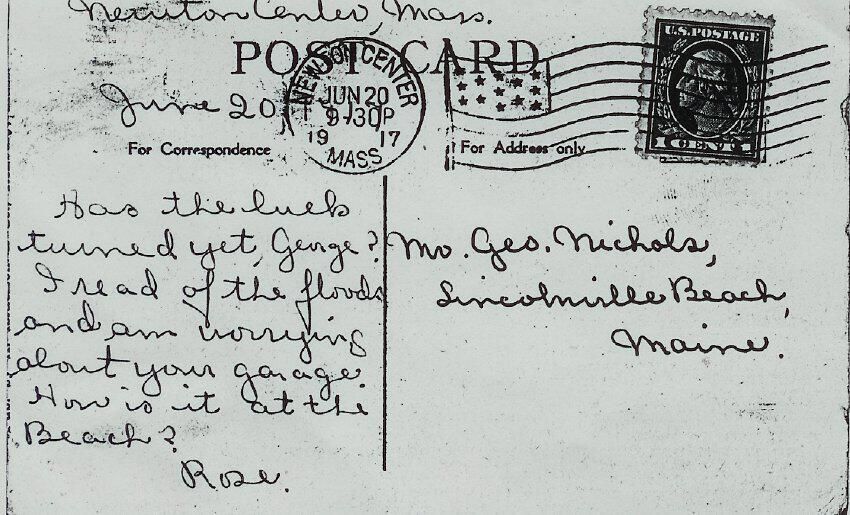 Newton Center, Mass.
POST CARD
June 20
NEWTON CENTER
JUN 20
9-30P
19 17
MASS
U.S. POSTAGE
1 CENT 1
For Correspondence
For Address only
Has the luck
turned yet, George?
I read of the floods
and am worrying
about your garage.
How is it at the
Beach?
Rose.
Mr. Geo. Nichols,
Lincolnville Beach,
Maine.